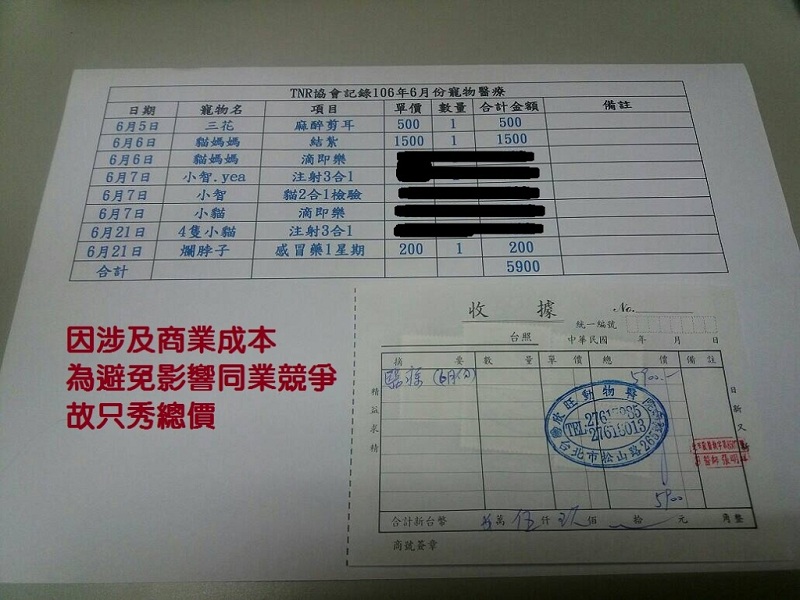 TNR協會記錄106年6月份寵物醫療
日期 寵物名 項目 單價 數量 合計金額 備註
6月5日 三花 麻醉剪耳 500 1 500
6月6日 貓媽媽 結紮 1500 1 1500
6月6日 貓媽媽 滴即樂
6月7日 小智.yea 注射3合1
6月7日 小智 貓2合1檢驗
6月7日 小貓 滴即樂
6月21日 4隻小貓 注射3合1
6月21日 爛脖子 感冒藥1星期 200 1 200
合計 5900
因涉及商業成本
為避免影響同業競爭
故只秀總價
收據 No.
統一編號
台照 中華民國 年 月 日
摘要 數量 單價 總價 備註
醫療(6月份) 5900.-
精益求精
日新又新
欣旺動物醫院
TEL:
台北市松山路
5900
合計新台幣 萬 伍仟 玖佰 拾 元 角整
商號簽章